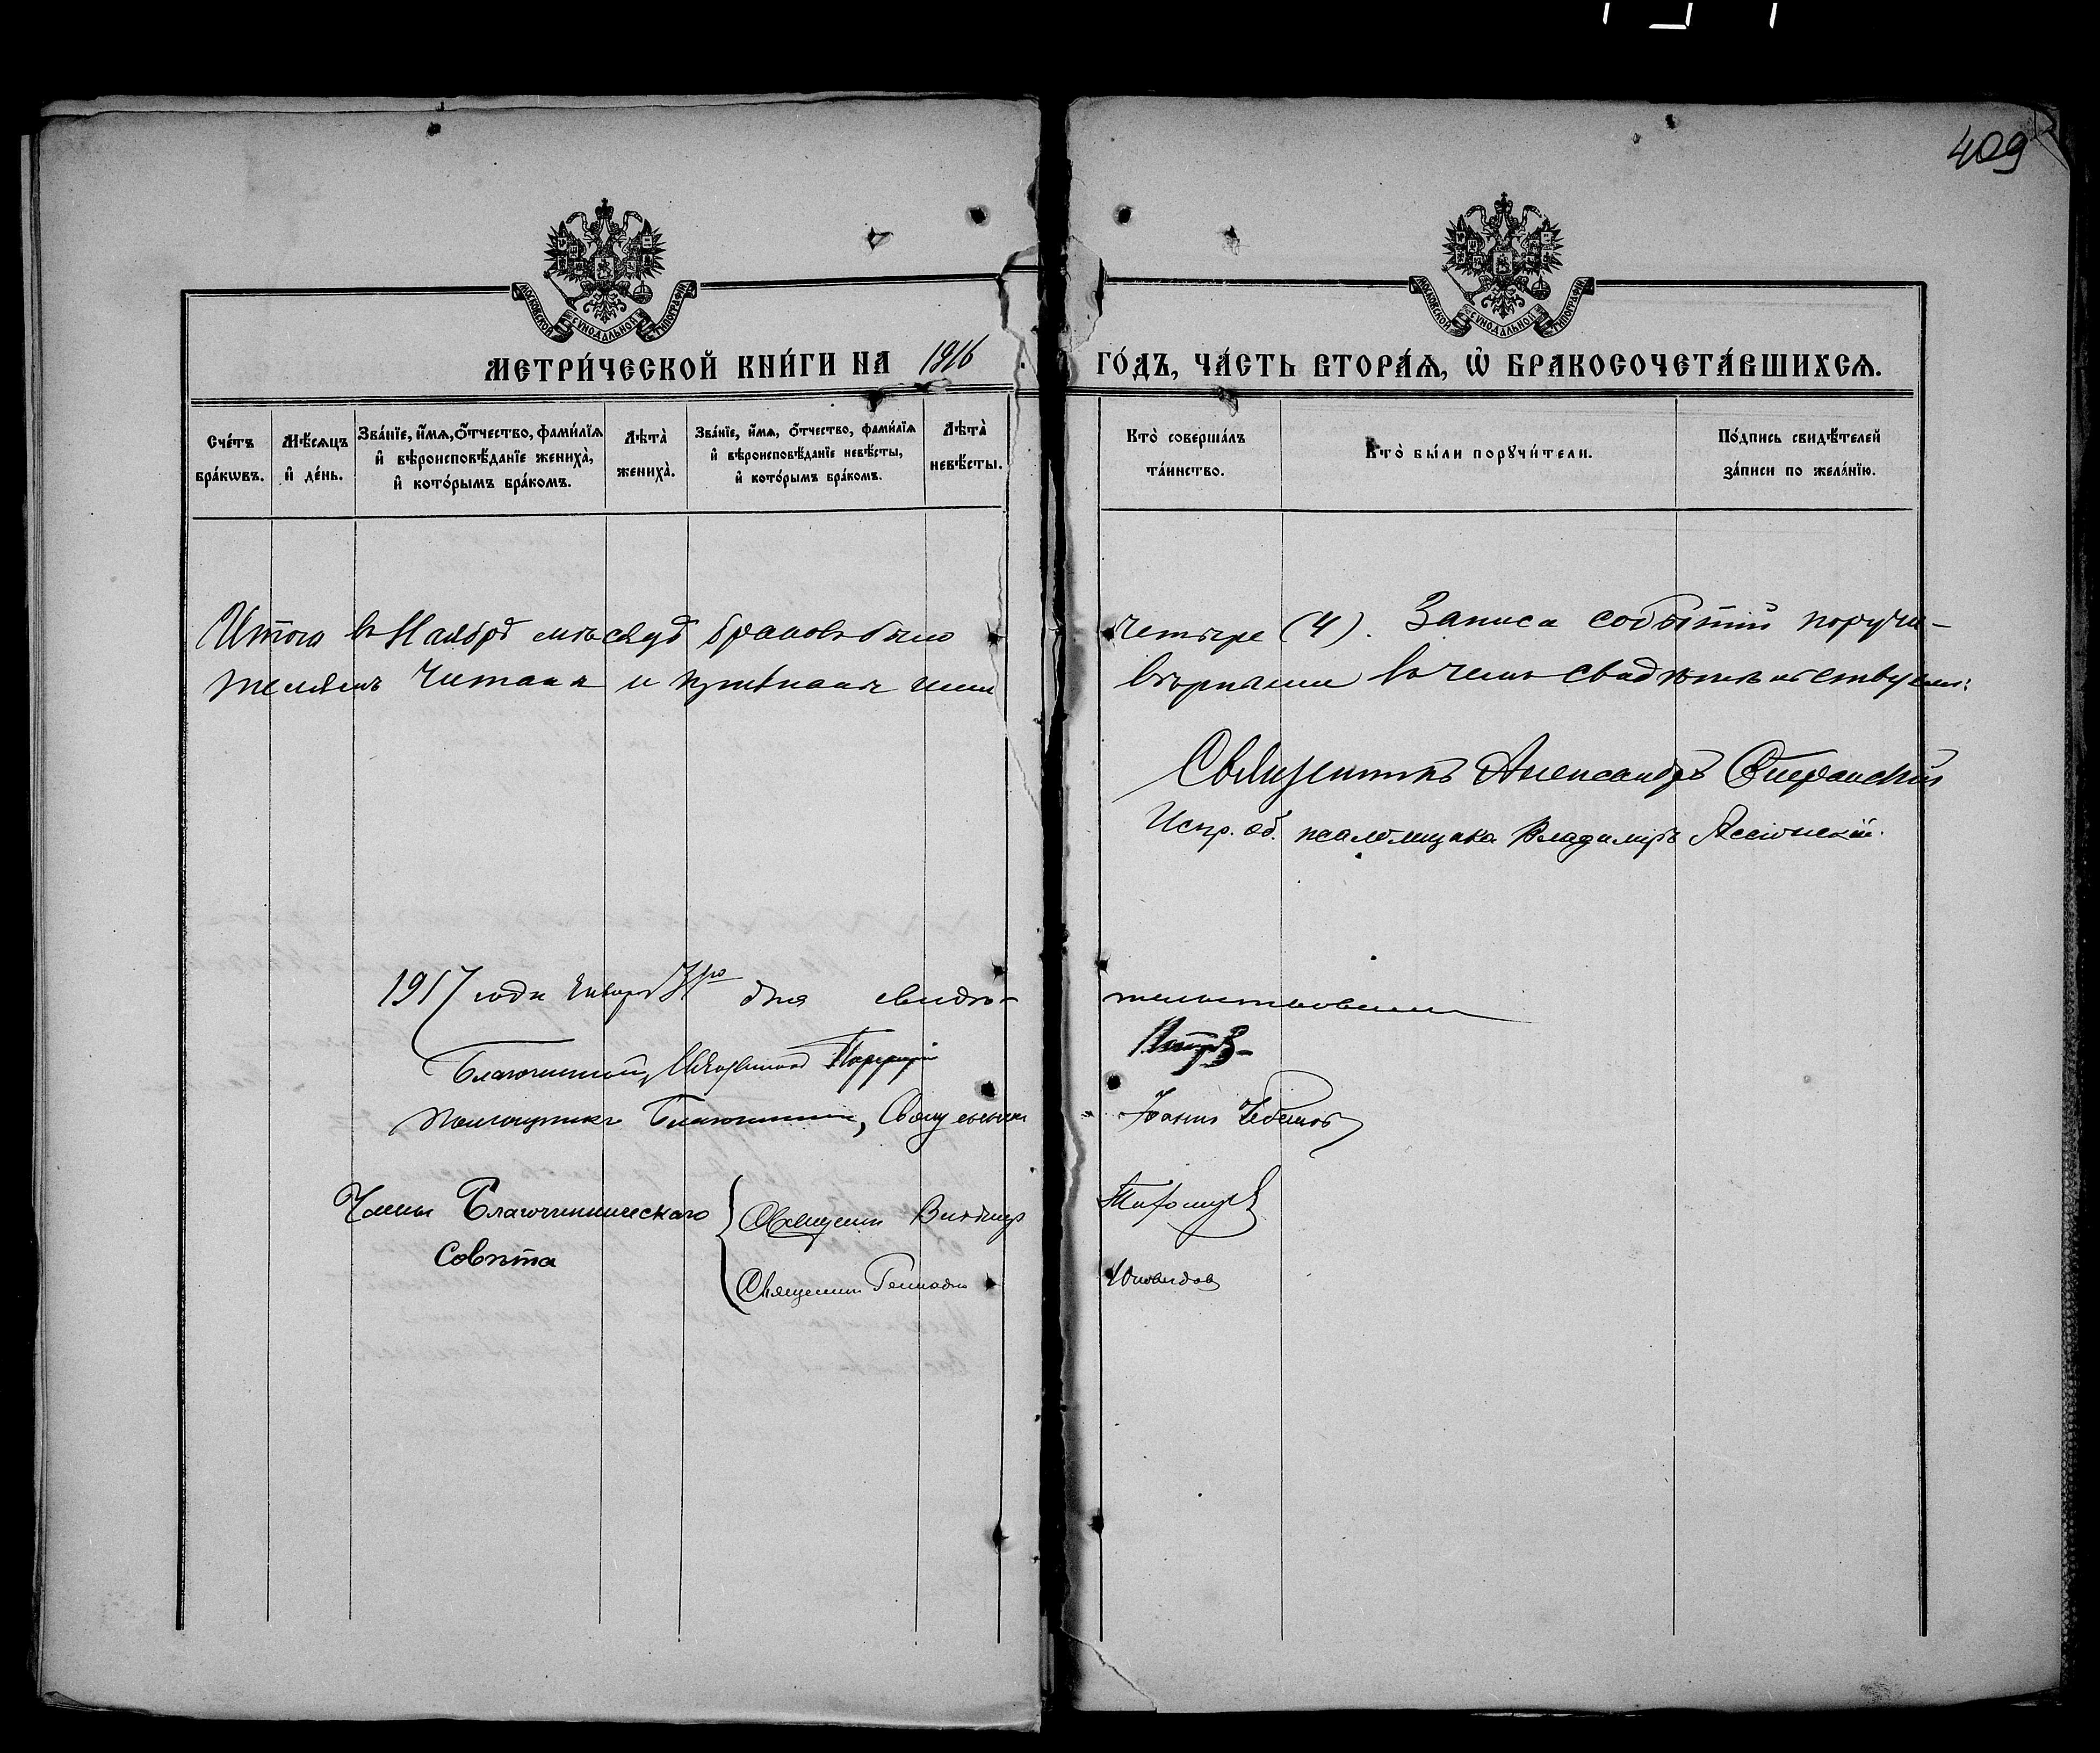 409
МОСКОВСКОЙ СѴНОДАЛЬНОЙ ТИПОГРАФІИ
МОСКОВСКОЙ СѴНОДАЛЬНОЙ ТИПОГРАФІИ
МЕТРИ́ЧЕСКОЙ КНИ́ГИ НА 1916 ГО́ДЪ, ЧА́СТЬ ВТОРА́Ѧ, Ѽ БРАКОСОЧЕТА́ВШИХСѦ.
Сче́тъ бра́кѡвъ.
Мѣ́сѧцъ и҆ де́нь.
Зва́нїе, и҆́мѧ, ѻ҆́тчество, фами́лїѧ и҆ вѣроисповѣ́данїе жениха̀, и҆ кото́рымъ бра́комъ.
Лѣта̀ жениха̀.
Зва́нїе, и҆́мѧ, ѻ҆́тчество, фами́лїѧ и҆ вѣроисповѣ́данїе невѣ́сты, и҆ кото́рымъ бра́комъ.
Лѣта̀ невѣ́сты.
Кто̀ соверша́лъ та́инство.
Кто̀ бы́ли порꙋчи́тели.
По́дпись свидѣ́телей за́писи по жела́нїю.
Итого въ Ноябрѣ мѣсяцѣ браковъ было четыре (4). Записа событій поручи-
телямъ читана и признана ими вѣрными въ чемъ свидѣтельствуемъ:
Священникъ Александръ Сперанскій
Испр. об. псаломщика Владимiръ Ясюнскій.
1917 года Января дня свидѣ- тельствовали
Благочинный, Священникъ Порфирій
Помощникъ Благочиннаго, Священникъ Іоаннъ
Члены Благочинническаго Совѣта
Священникъ Викторъ Тихомировъ
Священникъ Геннадій Юновидов